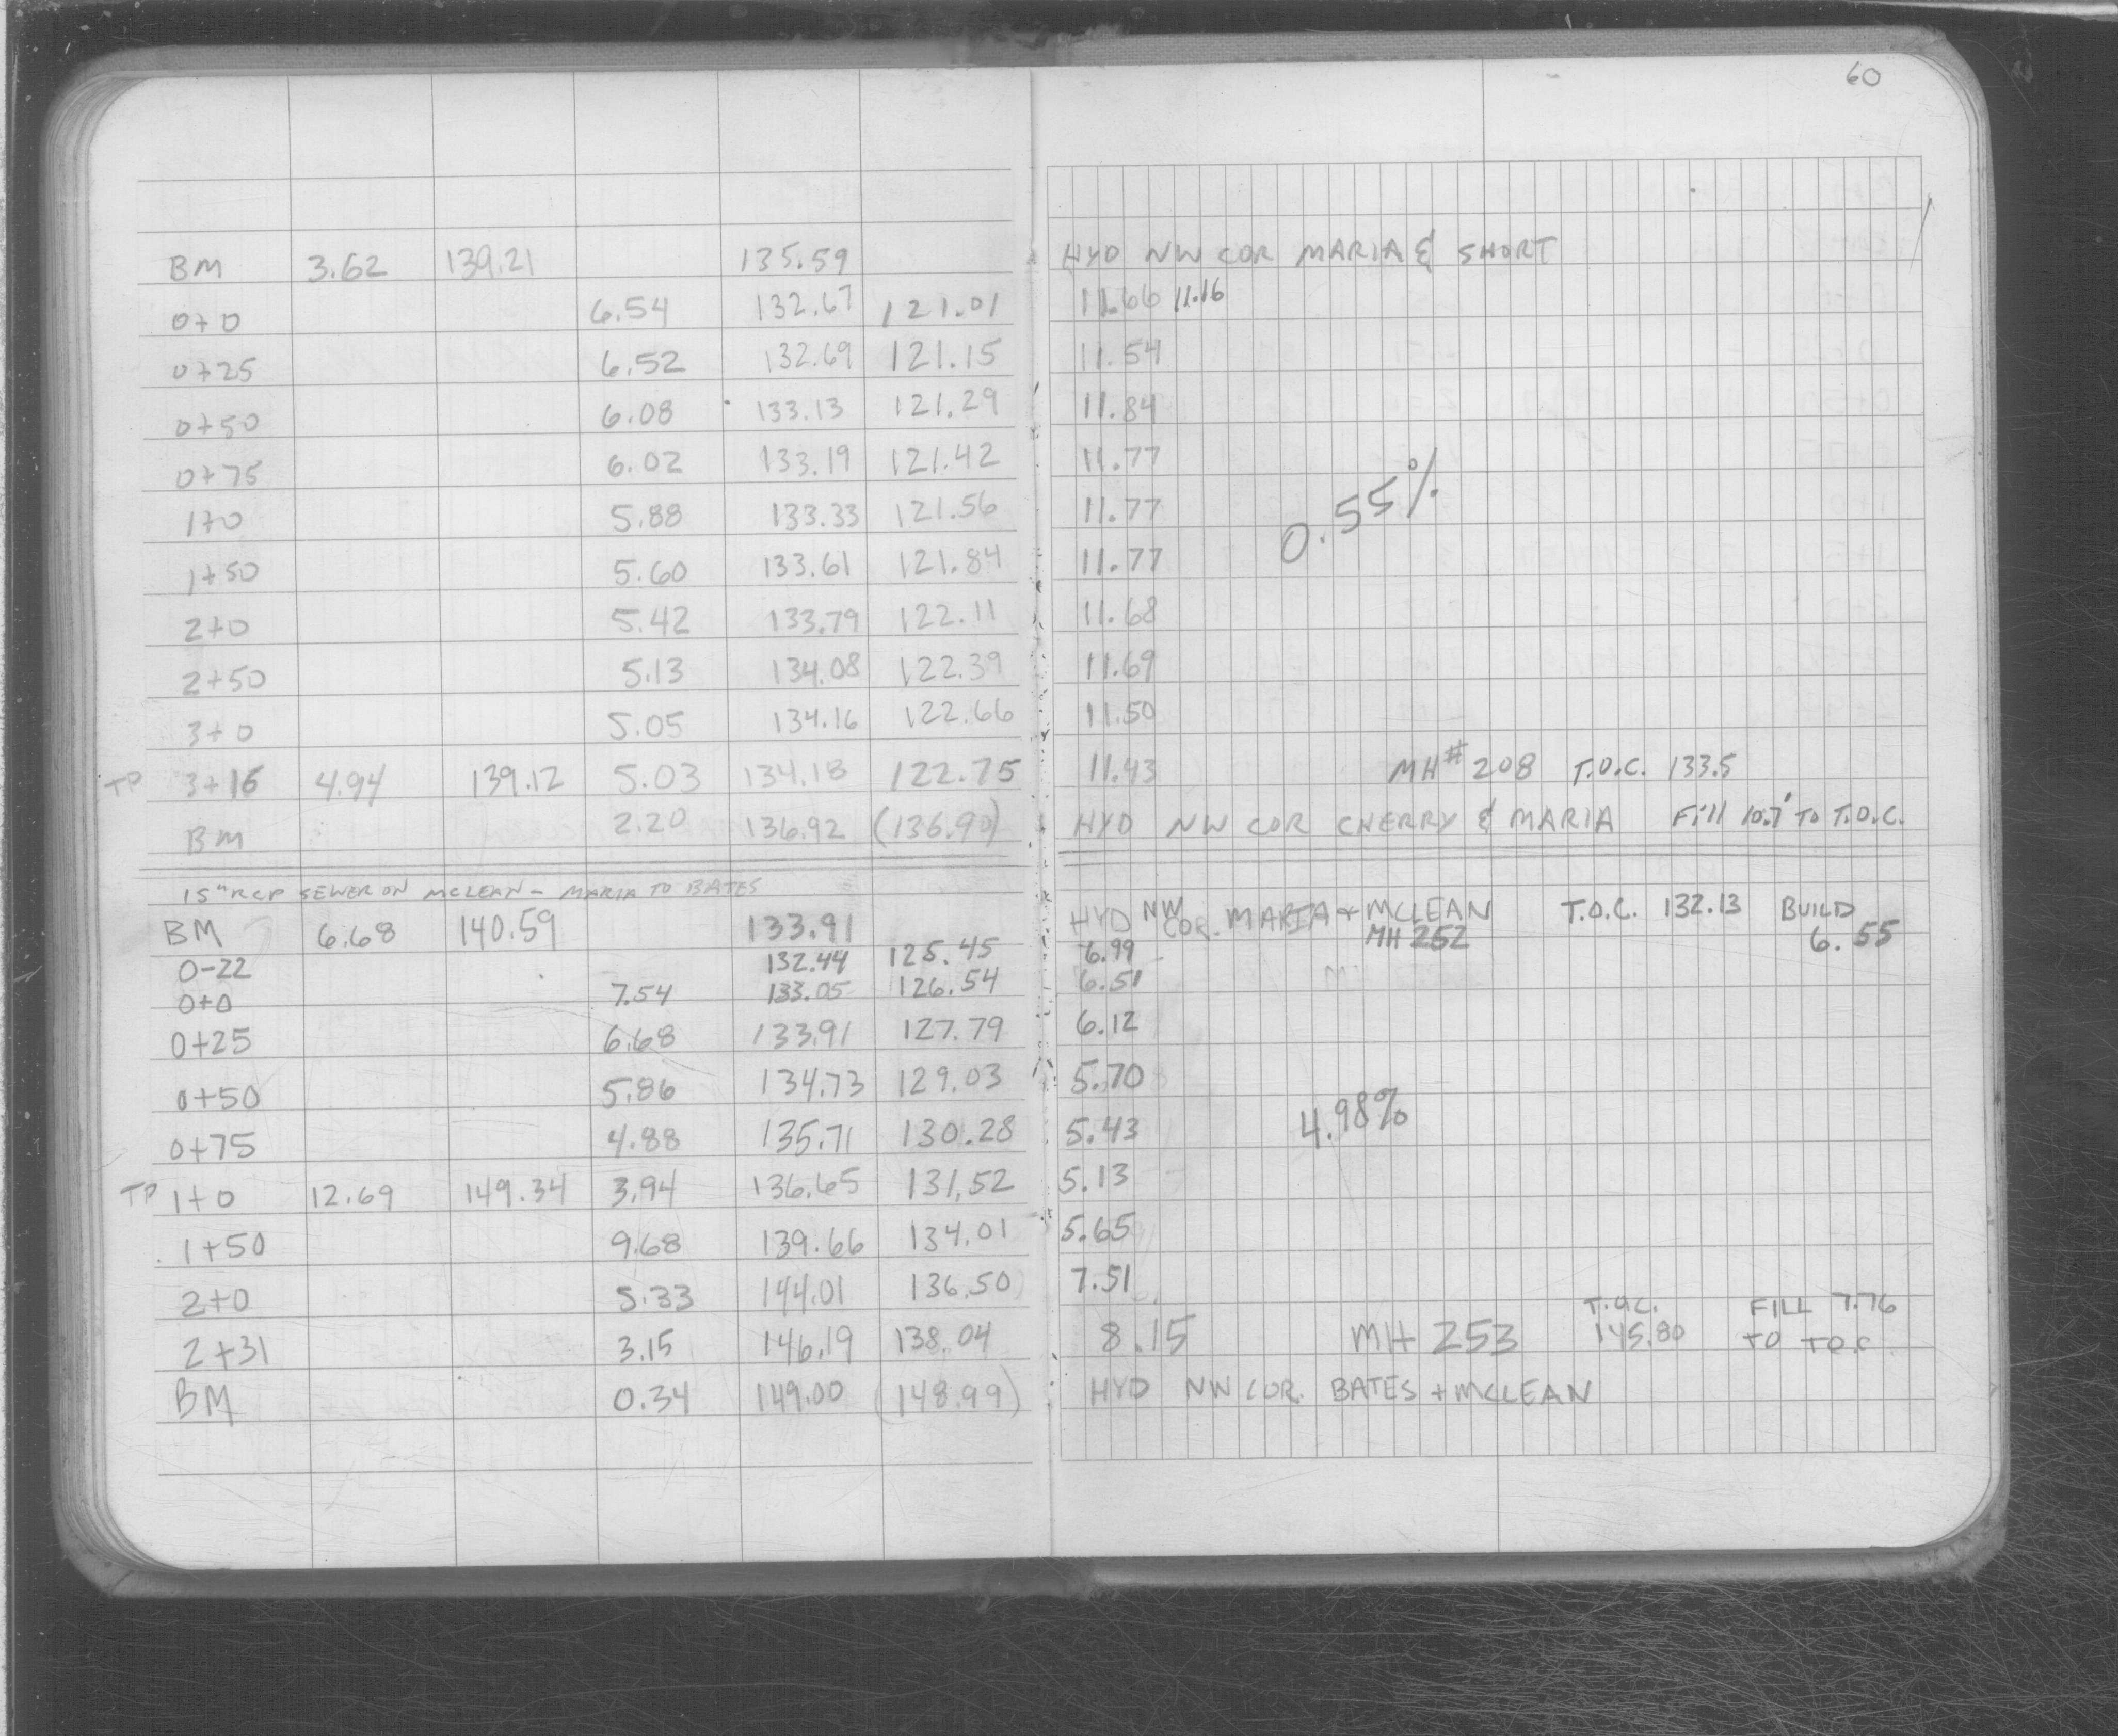 60
BM 3.62 139.21 135.59 HYD NW COR MARIA & SHORT
0+0 6.54 132.67 121.01 11.66 11.16
0+25 6.52 132.69 121.15 11.54
0+50 6.08 133.13 121.29 11.84
0+75 6.02 133.19 121.42 11.77
1+0 5.88 133.33 121.56 11.77
0.55%
1+50 5.60 133.61 121.84 11.77
2+0 5.42 133.79 122.11 11.68
2+50 5.13 134.08 122.39 11.69
3+0 5.05 134.16 122.66 11.50
TP 3+16 4.94 139.12 5.03 134.18 122.75 11.43 MH# 208 T.O.C. 133.5
BM 2.20 136.92 (136.90) HYD NW COR CHERRY & MARIA Fill 10.7' TO T.O.C.
15" RCP SEWER ON MCLEAN - MARIA TO BATES
BM 6.68 140.59 133.91 HYD NW COR. MARIA + MCLEAN T.O.C. 132.13 BUILD
0-22 132.44 125.45 6.99 MH 252 6.55
0+0 7.54 133.05 126.54 6.51
0+25 6.68 133.91 127.79 6.12
0+50 5.86 134.73 129.03 5.70
0+75 4.88 135.71 130.28 5.43 4.98%
TP 1+0 12.69 149.34 3.94 136.65 131.52 5.13
1+50 9.68 139.66 134.01 5.65
2+0 5.33 144.01 136.50 7.51
T.O.C. FILL 7.76
2+31 3.15 146.19 138.04 8.15 MH 253 145.80 TO T.O.C
BM 0.34 149.00 (148.99) HYD NW COR. BATES + MCLEAN